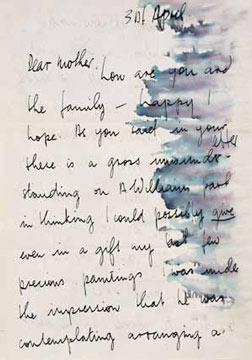 3rd April
Dear Mother. how are you and
the family - happy I
hope. As you said in your
letter
there is a gross misunder-
standing on A Williams part
in thinking I could possibly give
even in a gift my last few
precious paintings I was under
the impression that he was
contemplating arranging a